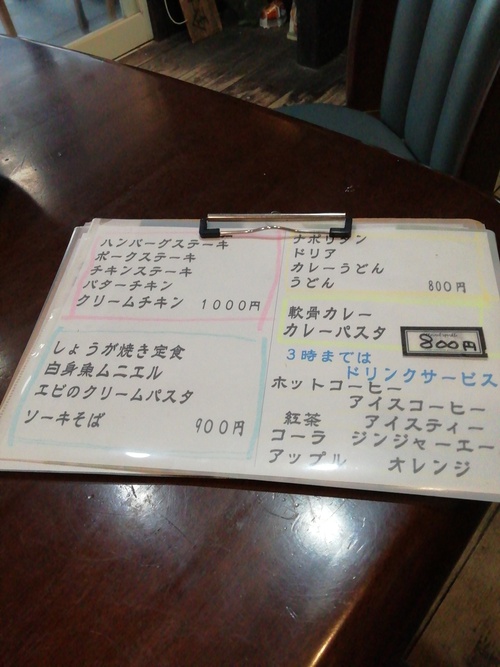 ハンバーグステーキ
ポークステーキ
チキンステーキ
バターチキン
クリームチキン 1000円
しょうが焼き定食
白身魚ムニエル
エビのクリームパスタ
ソーキそば 900円
ナポリタン
ドリア
カレーうどん
うどん 800円
軟骨カレー
カレーパスタ 800円
3時までは
ドリンクサービス
ホットコーヒー
アイスコーヒー
紅茶 アイスティー
コーラ ジンジャーエー
アップル オレンジ